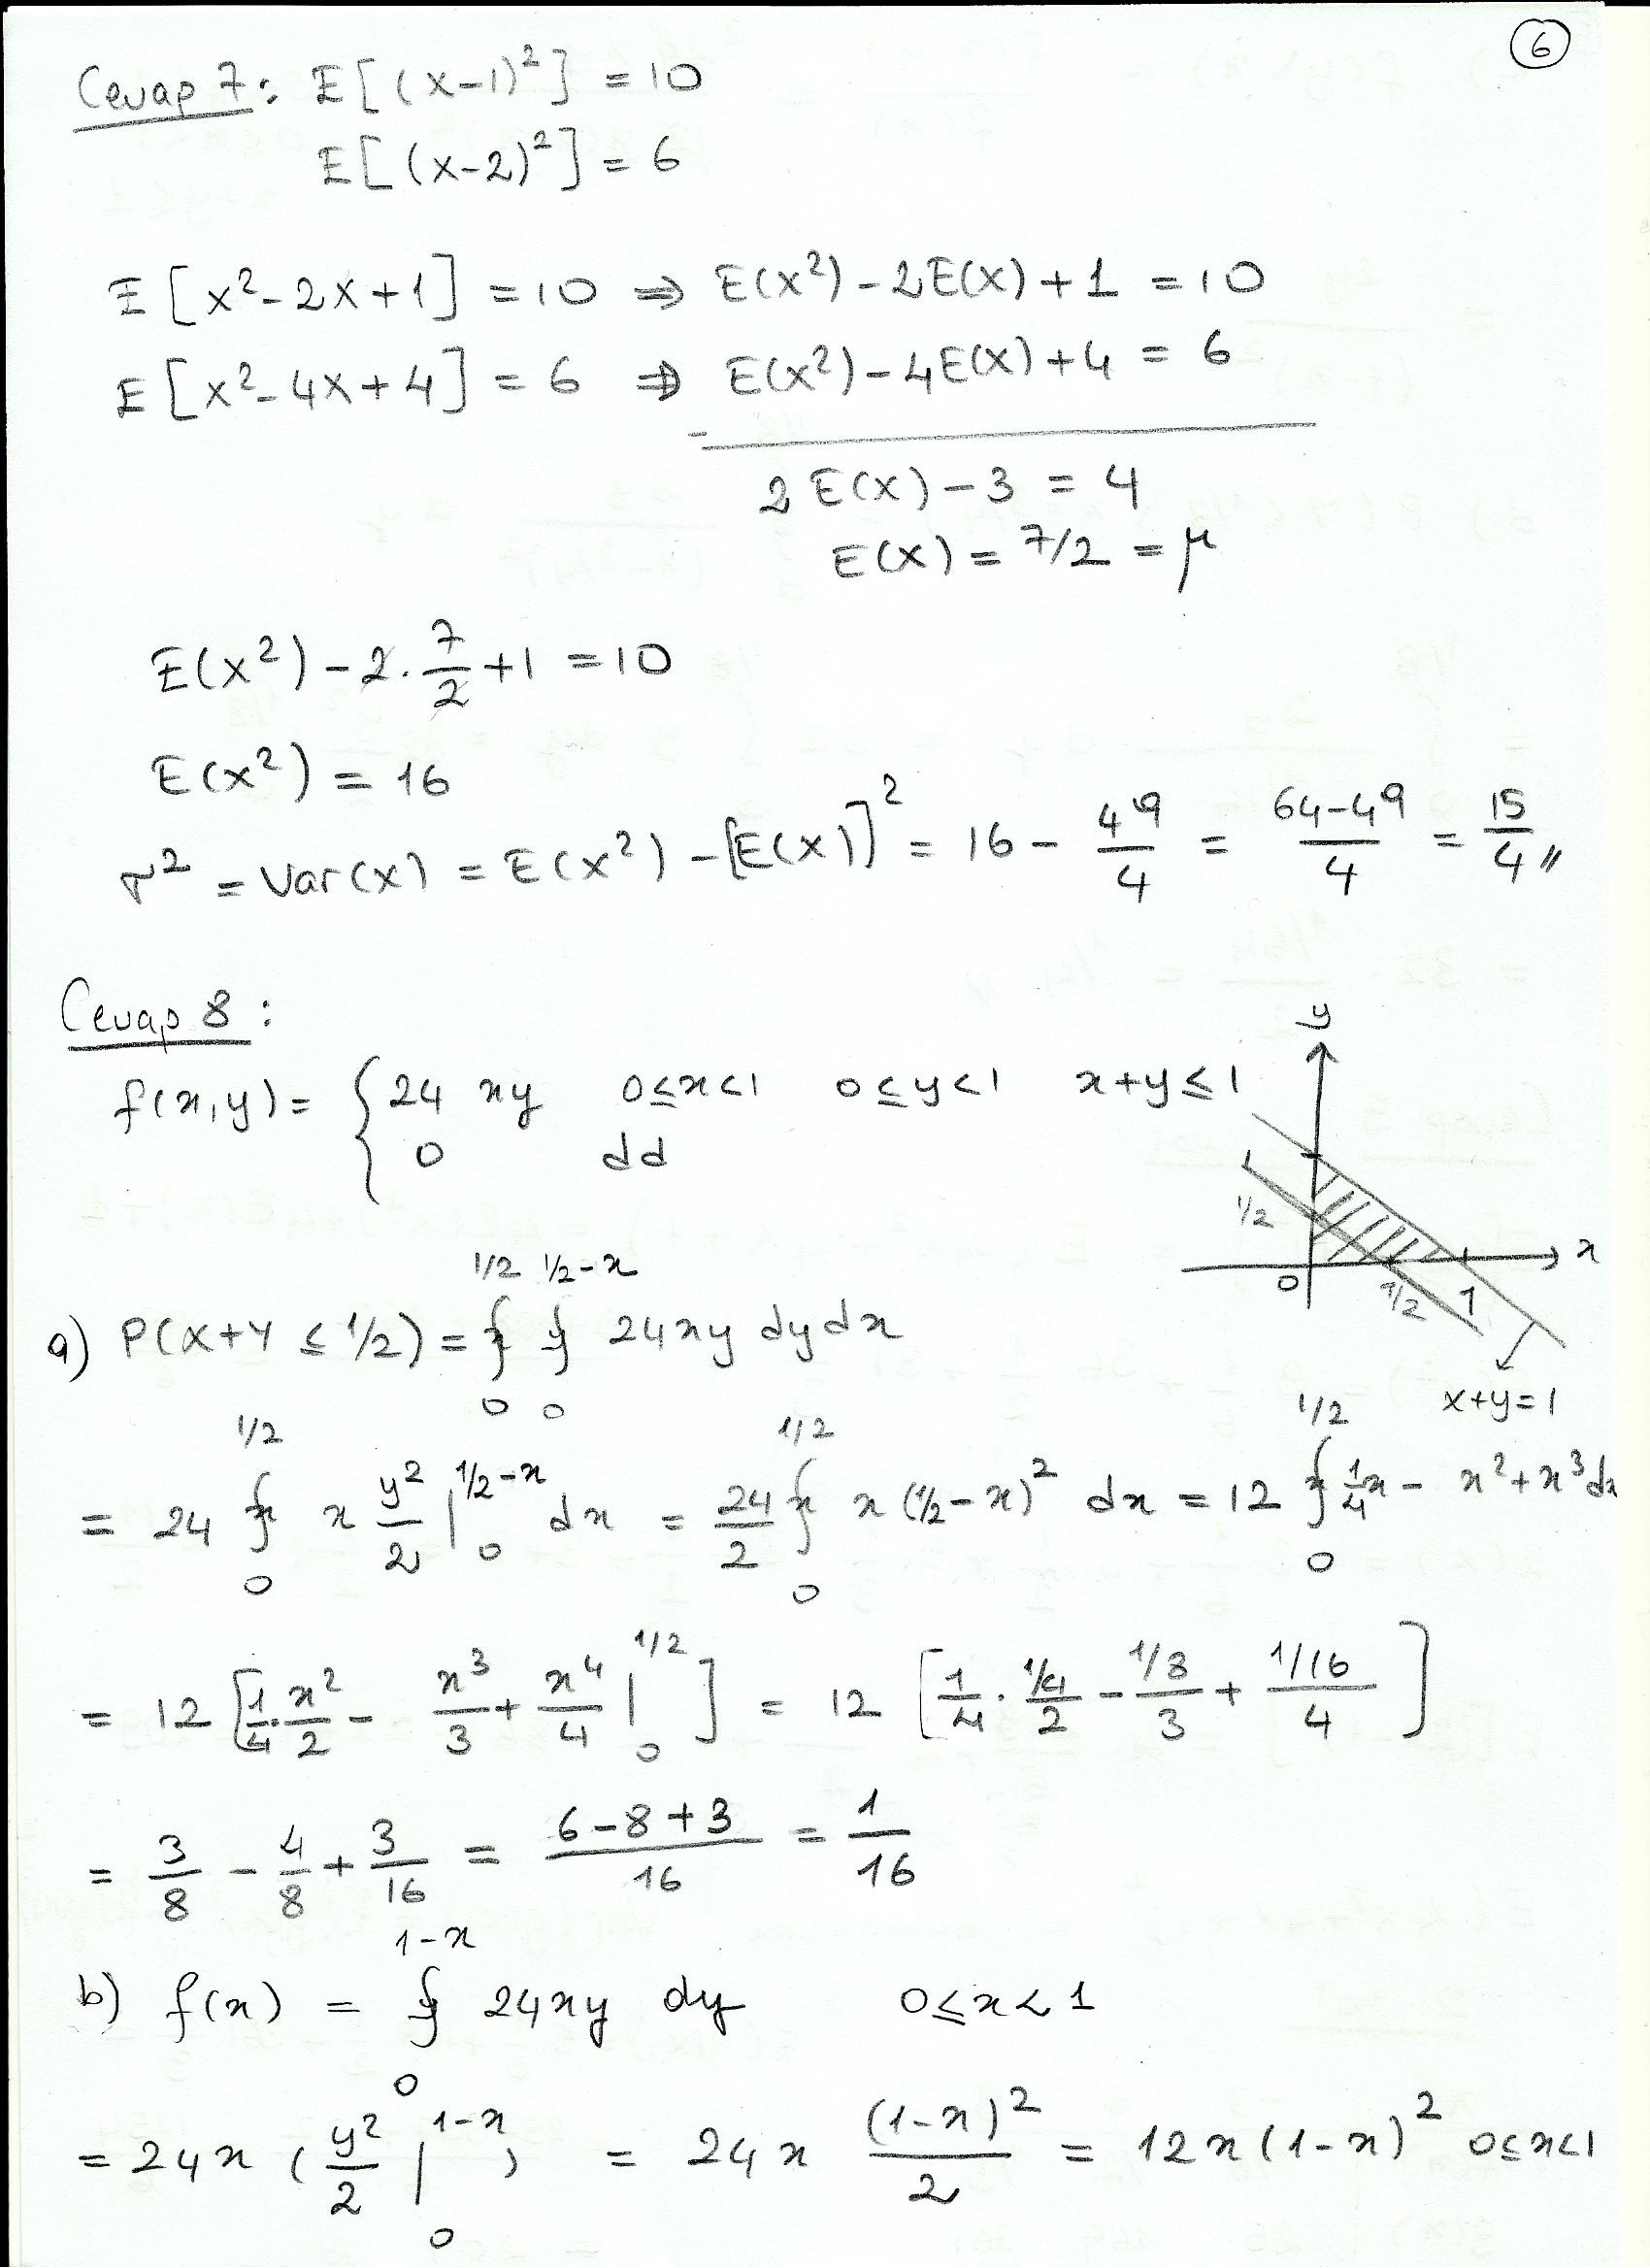 6
Cevap 7: E[(x-1)²] = 10
E[(x-2)²] = 6
E[x²-2x+1] = 10 ⇒ E(x²) - 2E(x) + 1 = 10
E[x²-4x+4] = 6 ⇒ E(x²) - 4E(x) + 4 = 6
-
2E(x) - 3 = 4
E(x) = 7/2 = μ
E(x²) - 2.7/2 + 1 = 10
E(x²) = 16
σ² = Var(x) = E(x²) - [E(x)]² = 16 - 49/4 = (64-49)/4 = 15/4 //
Cevap 8:
f(x,y) = { 24 xy 0≤x<1 0≤y<1 x+y≤1
0 dd
y
1
1/2
0
1/2
1
x
x+y=1
a) P(X+Y ≤ 1/2) = ∫₀^(1/2) ∫₀^(1/2-x) 24xy dy dx
= 24 ∫₀^(1/2) x y²/2 |₀^(1/2-x) dx = 24/2 ∫₀^(1/2) x (1/2-x)² dx = 12 ∫₀^(1/2) 1/4 x - x² + x³ dx
= 12 [1/4 . x²/2 - x³/3 + x⁴/4 |₀^(1/2)] = 12 [1/4 . (1/4)/2 - (1/8)/3 + (1/16)/4]
= 3/8 - 4/8 + 3/16 = (6-8+3)/16 = 1/16
b) f(x) = ∫₀^(1-x) 24xy dy 0≤x<1
= 24x (y²/2 |₀^(1-x)) = 24x (1-x)²/2 = 12x(1-x)² 0≤x<1